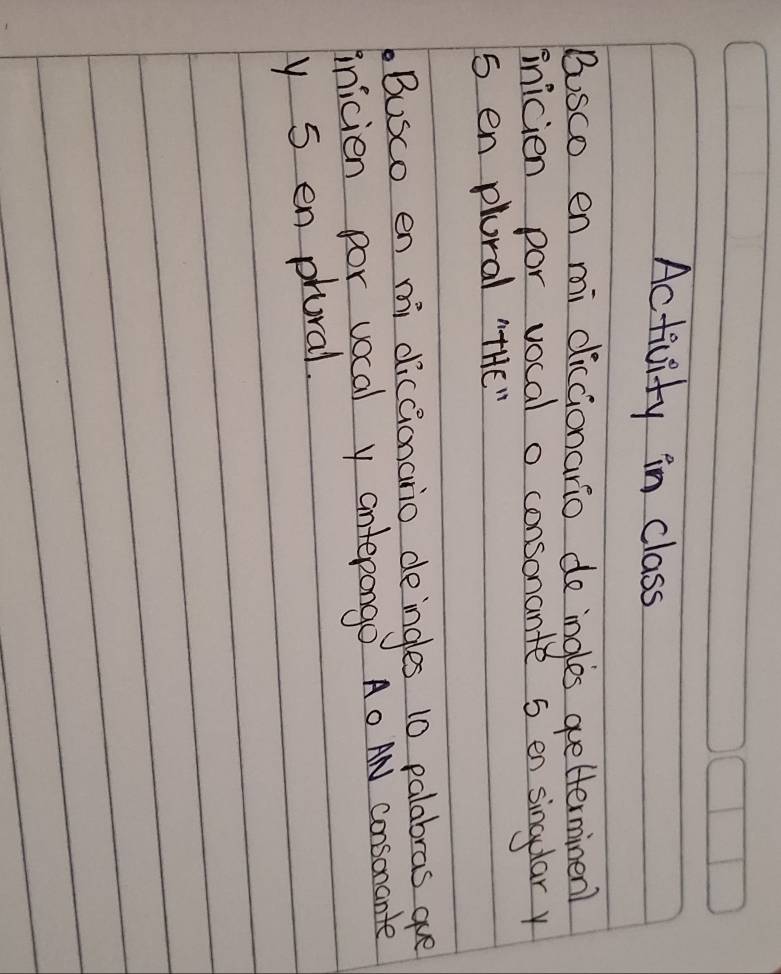 Activity in class
Busco en mi diccionario de inglés que (terminen)
inicien por vocal o consonante 5 en singular y
5 en plural "THE"
• Busco en mi diccionario de ingles 10 palabras que
inicien por vocal y antepongo A o AN consonante
y 5 en plural.